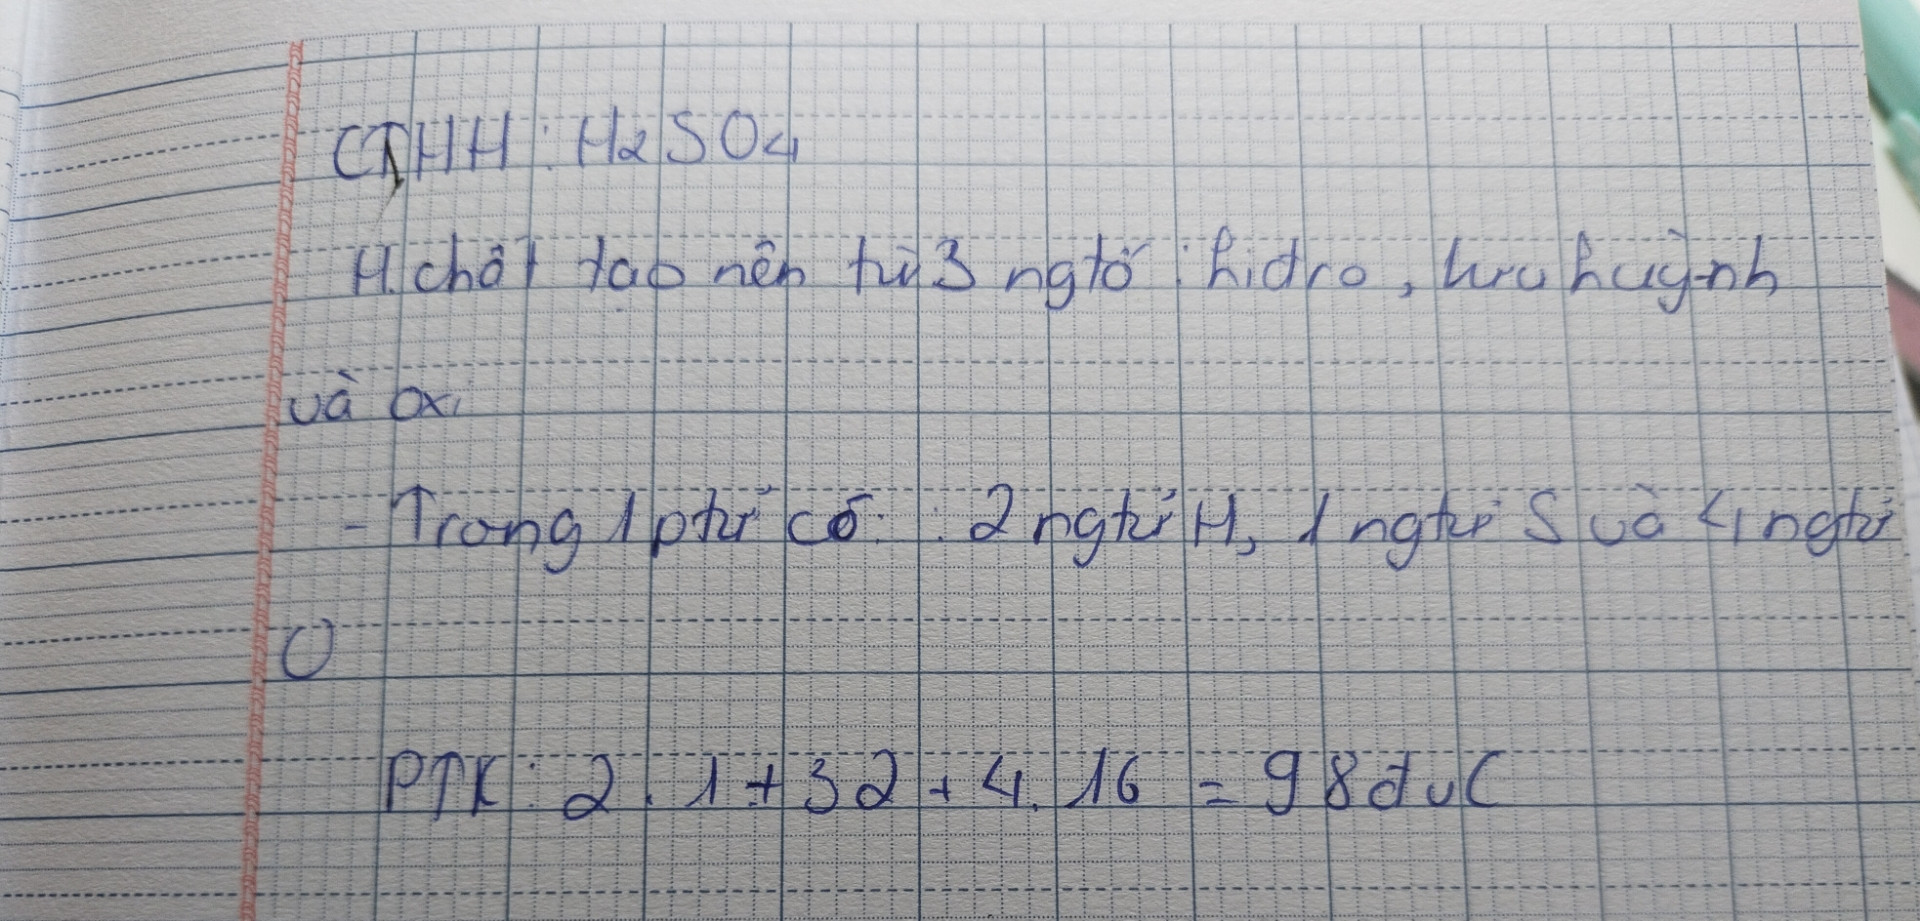 CTHH: H2SO4
H.chất tạo nên từ 3 ngtố: hidro, lưu huỳnh
và oxi
- Trong 1 ptử có: : 2 ngtử H, 1 ngtử S và 4 ngtử
O
PTK: 2.1+32+4.16 = 98 đvC